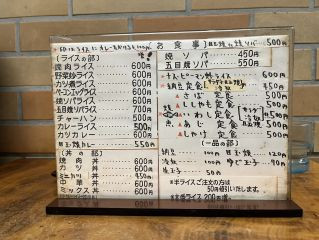 お食事
(ライスの部)
焼肉ライス 600円
野菜炒ライス 600円
ベーコンエッグライス 600円
焼ソバライス 600円
五目焼ソバライス 700円
チャーハン 500円
カレーライス 500円
カツカレー 600円
目玉焼カレー 550円
(丼の部)
焼肉丼 600円
カツ丼 600円
中華丼 600円
ミックス丼
焼ソバ 450円
五目焼ソバ 550円
ナス・ピーマン炒ライス 600円
納豆定食
さば定食
ししゃも定食
いわし定食
あじ定食
しゃけ定食
(一品の部)
納豆 100円 目玉焼 120円
冷奴 100円 ゆで玉子 90円
生玉子 50円
※半ライスご注文の方は
50円値引いたします。
※本番ライス 200円増